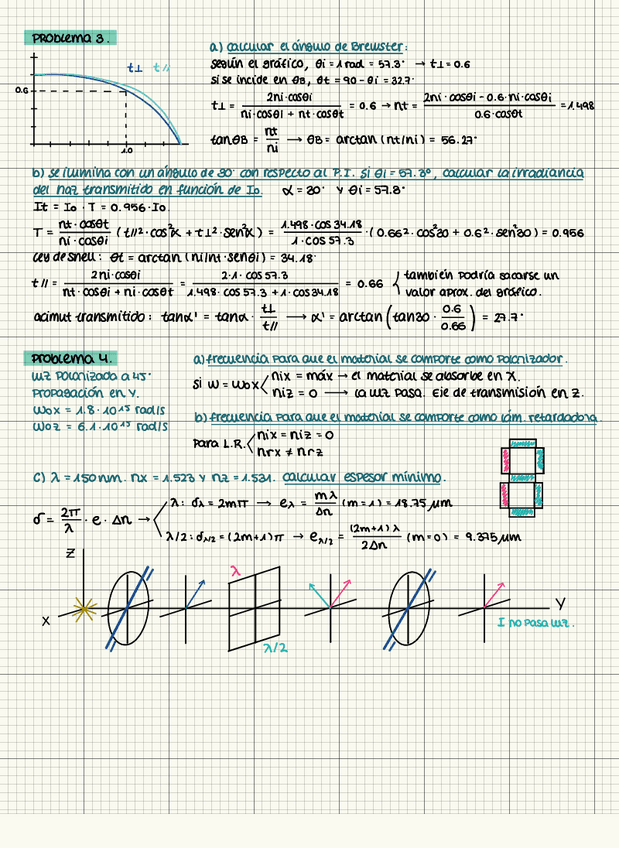 PROBLEMA 3.
t⊥ t∥
0.6
1.0
a) Calcular el ángulo de Brewster:
según el gráfico, θi = 1 rad = 57.3° → t⊥ = 0.6
si se incide en θB, θt = 90 - θi = 32.7°
t⊥ = 2ni·cosθi / (ni·cosθi + nt·cosθt) = 0.6 → nt = (2ni·cosθi - 0.6·ni·cosθi) / (0.6·cosθt) = 1.498
tanθB = nt/ni → θB = arctan (nt/ni) = 56.27°
b) se ilumina con un ángulo de 30° con respecto al P.I. si θi = 57.3°, calcular la irradiancia
del haz transmitido en función de I₀. α = 30° y θi = 57.3°
It = I₀·T = 0.956·I₀
T = (nt·cosθt / ni·cosθi) (t∥²·cos²α + t⊥²·sen²α) = (1.498·cos 34.18 / 1·cos 57.3) · (0.66²·cos²30 + 0.6²·sen²30) = 0.956
Ley de Snell: θt = arctan (ni/nt·senθi) = 34.18°
t∥ = 2ni·cosθi / (nt·cosθi + ni·cosθt) = 2·1·cos 57.3 / (1.498·cos 57.3 + 1·cos 34.18) = 0.66 { también podría sacarse un
valor aprox. del gráfico.
acimut transmitido: tanα' = tanα · t⊥/t∥ → α' = arctan (tan30 · 0.6/0.66) = 27.7°
PROBLEMA 4.
luz polarizada a 45°
Propagación en Y.
ω₀x = 1.8·10¹⁵ rad/s
ω₀z = 6.1·10¹⁵ rad/s
a) Frecuencia para que el material se comporte como polarizador.
si ω = ω₀x
nix = máx → el material se absorbe en X.
niz = 0 → la luz pasa. Eje de transmisión en Z.
b) Frecuencia para que el material se comporte como lám. retardadora.
Para L.R.
nix = niz = 0
nrx ≠ nrz
c) λ = 150nm. nx = 1.523 y nz = 1.531. Calcular espesor mínimo.
δ = 2π/λ · e · Δn →
λ: δλ = 2mπ → eλ = mλ/Δn (m=1) = 18.75 μm
λ/2: δλ/2 = (2m+1)π → eλ/2 = (2m+1)λ / 2Δn (m=0) = 9.375 μm
Z
λ
X
Y
λ/2
I no pasa luz.